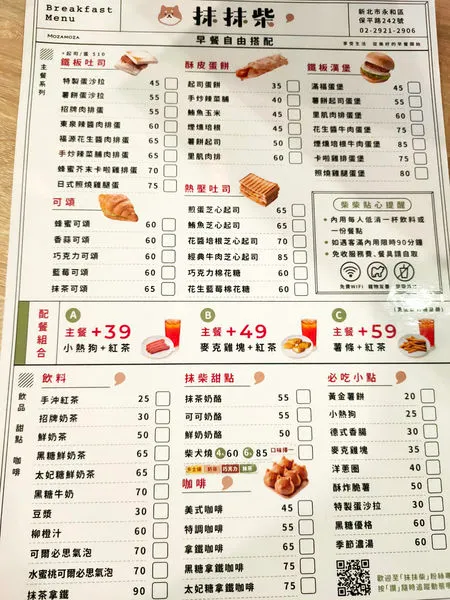 Breakfast
Menu
MOZAMOZA
抹抹柴
早餐自由搭配
新北市永和區
保平路242號
02-2921-2906
享受生活 從美好的早餐開始
主餐系列
+起司/蛋 $10
鐵板吐司
特製蛋沙拉 45
薯餅蛋沙拉 55
招牌肉排蛋 55
東泉辣醬肉排蛋 60
福源花生醬肉排蛋 65
手炒辣菜脯肉排蛋 65
蜂蜜芥末卡啦雞排蛋 70
日式照燒雞腿蛋 75
酥皮蛋餅
起司雙蛋 35
手炒辣菜脯 40
鮪魚玉米 45
煙燻培根 45
薯餅起司 50
里肌肉排 60
鐵板漢堡
滿福蛋堡 45
薯餅起司蛋堡 55
里肌肉排蛋堡 60
花生醬牛肉蛋堡 65
煙燻培根蛋堡 65
卡啦雞排蛋堡 70
照燒雞腿蛋堡 80
可頌
蜂蜜可頌 60
香蒜可頌 60
巧克力可頌 60
藍莓可頌 60
抹茶可頌 65
熱壓吐司
煎蛋芝心起司 65
鮪魚芝心起司 65
花醬培根芝心起司 70
經典牛肉芝心起司 85
巧克力棉花糖 60
花生藍莓棉花糖 60
柴柴貼心提醒
內用每人低消一杯飲料或
一份餐點
如遇客滿內用限時90分鐘
免收服務費、餐具請自取
免費WIFI 寵物友善
配餐組合
A
主餐+39
小熱狗+紅茶
B
主餐+49
麥克雞塊+紅茶
C
主餐+59
薯條+紅茶
飲品 甜點 咖啡
飲料
手沖紅茶 25
招牌奶茶 30
鮮奶茶 50
黑糖鮮奶茶 65
太妃糖鮮奶茶 65
黑糖牛奶 70
豆漿 30
柳橙汁 60
可爾必思氣泡 70
水蜜桃可爾必思氣泡 70
抹茶拿鐵 90
抹柴甜點
抹茶奶酪 55
可可奶酪 55
鮮奶奶酪 50
柴犬燒 4入60 6入85 口味擇一
卡士達 奶茶 巧克力 抹茶
咖啡
美式咖啡 45
特調咖啡 55
拿鐵咖啡 65
黑糖拿鐵咖啡 75
太妃糖拿鐵咖啡 75
必吃小點
黃金薯餅 20
小熱狗 25
德式香腸 30
麥克雞塊 35
洋蔥圈 40
酥炸脆薯 50
特製蛋沙拉 30
黑糖優格 60
季節濃湯 60
歡迎至「抹抹柴」粉絲專
按「讚」隨時追蹤動態喔